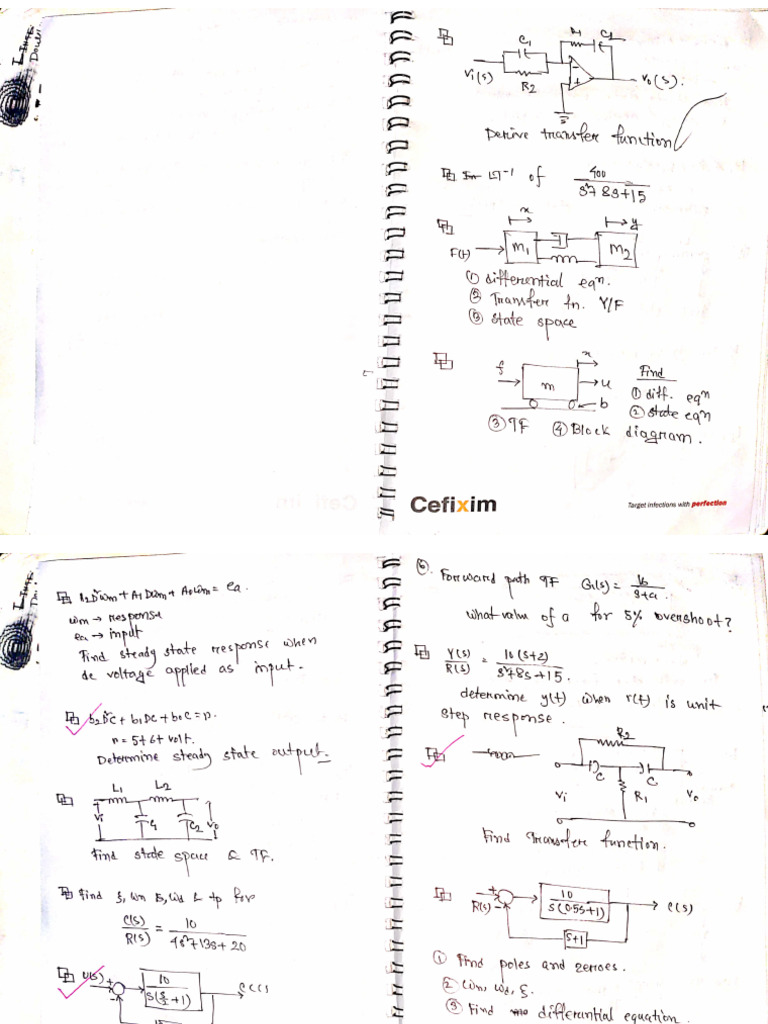 C₁
R₁ C₂
Vi(s)
R₂
Vo(s).
Derive transfer function
of 400 / s²+8s+15
x
y
F(t)
m₁
m₂
① differential eqn.
② Transfer fn. Y/F
③ state space
x
f
m
u
b
Find
① diff. eqn
② state eqn
③ TF ④ Block diagram.
Cefixim
Target infections with perfection
A₂D²ωm + A₁Dωm + A₀ωm = ea.
ωm → response
ea → input
Find steady state response when
dc voltage applied as input.
b₂D²c + b₁Dc + b₀c = r.
r = 5+6t volt.
Determine steady state output.
L₁ L₂
Vi
C₁
C₂
Vo
Find state space & TF.
Find ξ, ωn, ωd & tp for
C(s)/R(s) = 10 / 4s²+13s+20
+
-
10 / s(s/2+1)
⑥. Forward path TF G(s) = 16 / s+a.
What value of a for 5% overshoot?
Y(s)/R(s) = 10(s+2) / s²+8s+15.
determine y(t) when r(t) is unit
step response.
R₂
C
C
Vi
R₁
Vo
Find transfer function.
R(s)
+
-
10 / s(0.5s+1)
C(s)
s+1
① Find poles and zeroes.
② ωn, ωd, ξ.
③ Find differential equation.